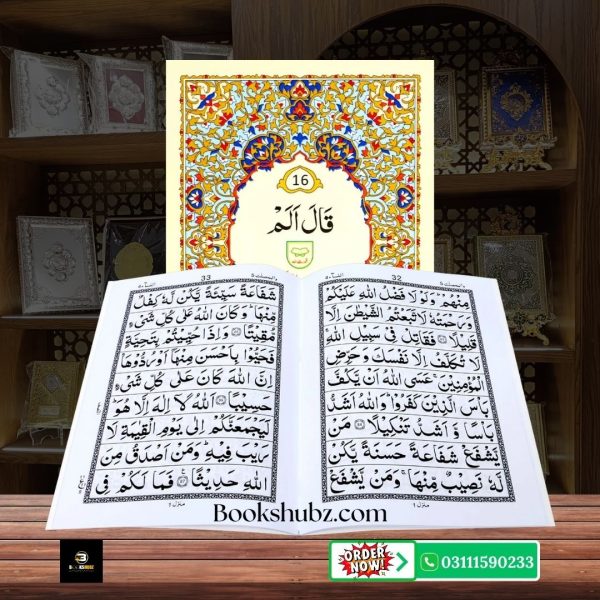 16
قَالَ اَلَمْ
32
مِنْهُمْ وَلَوْلَا فَضْلُ اللّٰهِ عَلَيْكُمْ
وَرَحْمَتُهٗ لَاتَّبَعْتُمُ الشَّيْطٰنَ اِلَّا
قَلِيْلًا ۝ فَقَاتِلْ فِيْ سَبِيْلِ اللّٰهِ
لَا تُكَلَّفُ اِلَّا نَفْسَكَ وَحَرِّضِ
الْمُؤْمِنِيْنَ عَسَى اللّٰهُ اَنْ يَّكُفَّ
بَاْسَ الَّذِيْنَ كَفَرُوْا وَاللّٰهُ اَشَدُّ
بَاْسًا وَّاَشَدُّ تَنْكِيْلًا ۝ مَنْ
يَّشْفَعْ شَفَاعَةً حَسَنَةً يَّكُنْ
لَّهٗ نَصِيْبٌ مِّنْهَا وَمَنْ يَّشْفَعْ
منزل ١
33
شَفَاعَةً سَيِّئَةً يَّكُنْ لَّهٗ كِفْلٌ
مِّنْهَا وَكَانَ اللّٰهُ عَلٰى كُلِّ شَيْءٍ
مُّقِيْتًا ۝ وَاِذَا حُيِّيْتُمْ بِتَحِيَّةٍ
فَحَيُّوْا بِاَحْسَنَ مِنْهَا اَوْ رُدُّوْهَا
اِنَّ اللّٰهَ كَانَ عَلٰى كُلِّ شَيْءٍ
حَسِيْبًا ۝ اَللّٰهُ لَا اِلٰهَ اِلَّا هُوَ
لَيَجْمَعَنَّكُمْ اِلٰى يَوْمِ الْقِيٰمَةِ لَا
رَيْبَ فِيْهِ وَمَنْ اَصْدَقُ مِنَ
اللّٰهِ حَدِيْثًا ۝ فَمَا لَكُمْ فِي
منزل ١
Bookshubz.com
ORDER
NOW!
03111590233